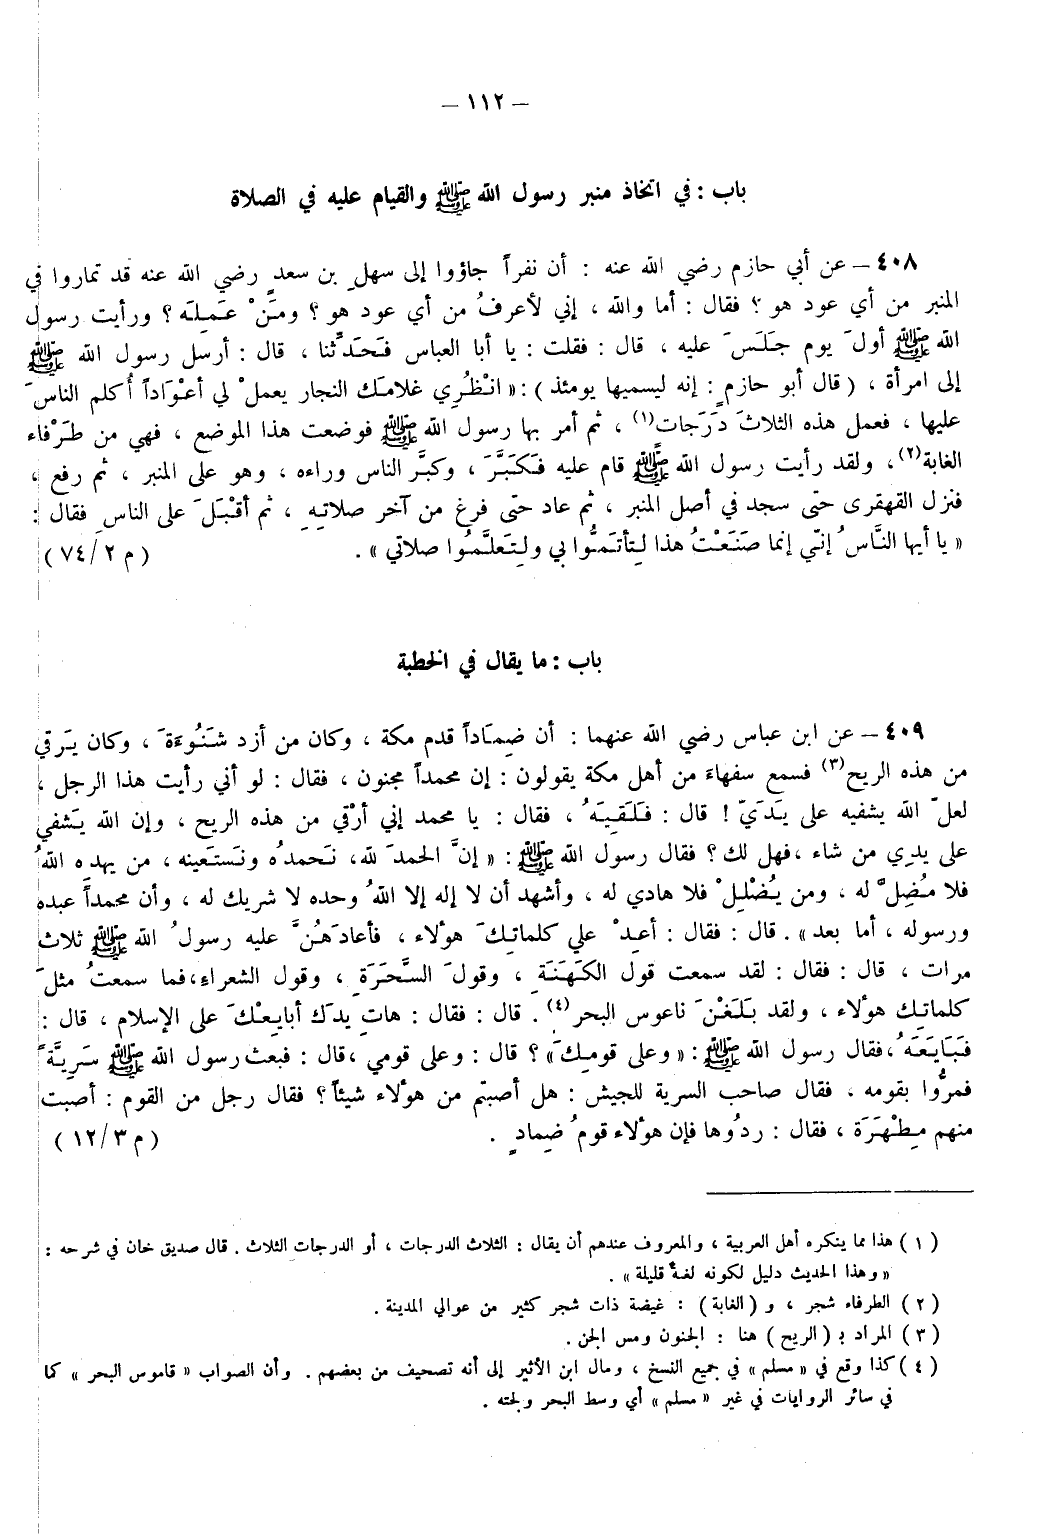 – ١١٢ –
باب : في اتخاذ منبر رسول الله ﷺ والقيام عليه في الصلاة
٤٠٨ – عن أبي حازم رضي الله عنه : أن نفراً جاؤوا إلى سهلِ بن سعدٍ رضي الله عنه قد تماروا في
المنبر من أي عود هو ؟ فقال : أما والله ، إني لأعرفُ من أي عود هو ؟ ومَنْ عَمِلَه ؟ ورأيت رسول
الله ﷺ أولَ يوم جَلَسَ عليه ، قال : فقلت : يا أبا العباس فَحَدِّثنا ، قال : أرسل رسول الله ﷺ
إلى امرأة ، ( قال أبو حازمٍ : إنه ليسميها يومئذ ) : « انْظُرِي غلامَك النجار يعملْ لي أعْوَاداً أُكلم الناسَ
عليها ، فعمل هذه الثلاثَ دَرَجات(١) ، ثم أمر بها رسول الله ﷺ فوضعت هذا الموضع ، فهي من طَرْفاء
الغابة(٢) ، ولقد رأيت رسول الله ﷺ قام عليه فَكَبَّرَ ، وكبَّر الناس وراءه ، وهو على المنبر ، ثم رفع ،
فنزل القهقرى حتى سجد في أصل المنبر ، ثم عاد حتى فرغ من آخر صلاتِهِ ، ثم أقْبَلَ على الناسِ فقال :
« يا أيها النَّاسُ إنّي إنما صَنَعْتُ هذا لِتأتَمُّوا بي ولِتَعلَّمُوا صلاتي » . ( م ٢/٧٤ )
باب : ما يقال في الخطبة
٤٠٩ – عن ابن عباس رضي الله عنهما : أن ضِمَاداً قدم مكة ، وكان من أزد شَنُوءَةَ ، وكان يَرقي
من هذه الريح(٣) فسمع سفهاءَ من أهل مكة يقولون : إن محمداً مجنون ، فقال : لو أني رأيت هذا الرجل ،
لعلّ الله يشفيه على يَدَيّ ! قال : فَلَقِيَهُ ، فقال : يا محمد إني أرْقي من هذه الريح ، وإن الله يَشفي
على يدِي من شاء ، فهل لك ؟ فقال رسول الله ﷺ : « إنَّ الحمدَ لله ، نَحمدُه ونَستَعينه ، من يهده اللهُ
فلا مُضِلَّ له ، ومن يُضْلِلْ فلا هادي له ، وأشهد أن لا إله إلا اللهُ وحده لا شريك له ، وأن محمداً عبده
ورسوله ، أما بعد » . قال : فقال : أعِدْ علي كلماتِكَ هؤلاء ، فأعادَهُنَّ عليه رسولُ الله ﷺ ثلاث
مرات ، قال : فقال : لقد سمعت قول الكَهَنَةِ ، وقولَ السَّحَرَةِ ، وقول الشعراءِ ، فما سمعتُ مثلَ
كلماتِك هؤلاء ، ولقد بَلَغْنَ ناعوس البحر(٤) . قال : فقال : هاتِ يدَك أبايِعْكَ على الإسلام ، قال :
فَبَايَعَهُ ، فقال رسول الله ﷺ : « وعلى قومِكَ » ؟ قال : وعلى قومي ، قال : فبعث رسول الله ﷺ سَرِيَّةً
فمرُّوا بقومه ، فقال صاحب السرية للجيش : هل أصبتم من هؤلاء شيئاً ؟ فقال رجل من القوم : أصبت
منهم مِطْهَرَة ، فقال : ردُوها فإن هؤلاء قومُ ضِمادٍ . ( م ٣/١٢ )
( ١ ) هذا مما ينكره أهل العربية ، والمعروف عندهم أن يقال : الثلاث الدرجات ، أو الدرجات الثلاث . قال صديق خان في شرحه :
« وهذا الحديث دليل لكونه لغةً قليلة » .
( ٢ ) الطرفاء شجر ، و ( الغابة ) : غيضة ذات شجر كثير من عوالي المدينة .
( ٣ ) المراد بـ ( الريح ) هنا : الجنون ومس الجن .
( ٤ ) كذا وقع في « مسلم » في جميع النسخ ، ومال ابن الأثير إلى أنه تصحيف من بعضهم . وأن الصواب « قاموس البحر » كما
في سائر الروايات في غير « مسلم » أي وسط البحر ولجته .